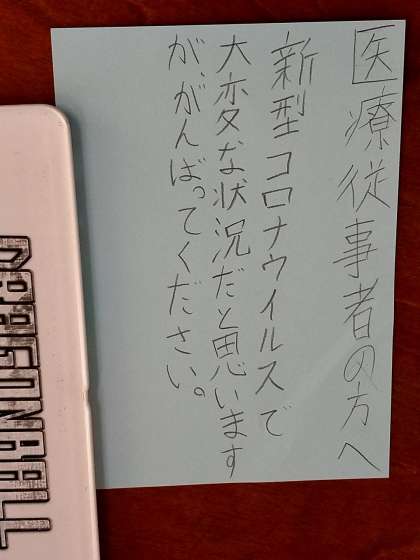 医療従事者の方へ
新型コロナウイルスで
大変な状況だと思います
が、がんばってください。
DRAGONBALL